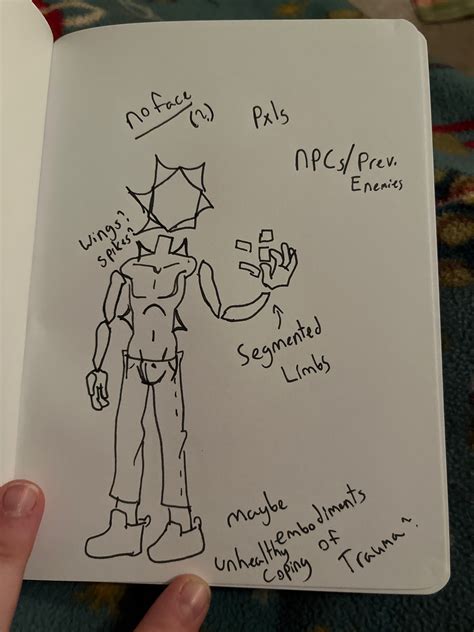 no face
(?)
Pxls
NPCs/Prev.
Enemies
Wings?
spikes?
Segmented
Limbs
maybe
embodiments
of
unhealthy
coping
Trauma?